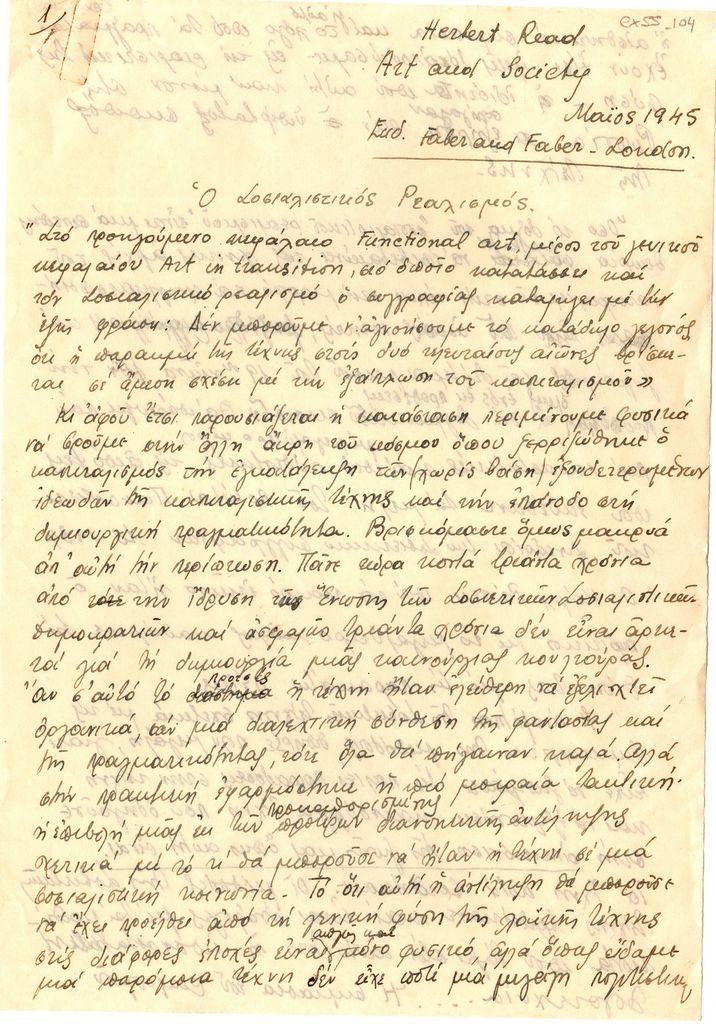 1/
ex55_104
Herbert Read
Art and Society
Μαϊος 1945
Εκδ. Faber and Faber - London.
Ὁ Σοσιαλιστικός Ρεαλισμός.
"Στό προηγούμενο κεφάλαιο Functional art, μέρος τοῦ γενικοῦ
κεφαλαίου Art in transition, στό ὁποῖο κατατάσσει καί
τόν Σοσιαλιστικό ρεαλισμό ὁ συγγραφέας καταλήγει μέ τήν
ἑξῆς φράση: Δέν μποροῦμε ν'ἀγνοήσουμε τό κατάδηλο γεγονός
ὅτι ἡ παρακμή τῆς τέχνης στούς δυό τελευταίους αἰῶνες βρίσκε-
ται σέ ἄμεση σχέση μέ τήν ἐξάπλωση τοῦ καπιταλισμοῦ»
Κι ἀφοῦ ἔτσι παρουσιάζεται ἡ κατάσταση περιμένουμε φυσικά
νά βροῦμε στήν ἄλλη ἄκρη τοῦ κόσμου ὅπου ξερριζώθηκε ὁ
καπιταλισμός τήν ἐγκατάλειψη τῶν (χωρίς βάση) ἐξουδετερωμένων
ἰδεωδῶν τῆς καπιταλιστικῆς τέχνης καί τήν ἐπάνοδο στή
δημιουργική πραγματικότητα. Βρισκόμαστε ὅμως μακρυά
ἀπ'αὐτή τήν περίπτωση. Πᾶνε τώρα κοντά τριάντα χρόνια
ἀπό τήν ἵδρυση τῆς Ἕνωσης τῶν Σοβιετικῶν Σοσιαλιστικῶν
Δημοκρατιῶν καί ἀσφαλῶς τριάντα χρόνια δέν εἶναι ἀρκε-
τά γιά τή δημιουργία μιᾶς καινούργιας κουλτούρας.
Ἄν σ'αὐτό τό προτσές ἡ τέχνη ἦταν ἐλεύθερη νά ἐξελιχτεῖ
ὀργανικά, σάν μιά διαλεκτική σύνθεση τῆς φαντασίας καί
τῆς πραγματικότητας, τότε ὅλα θά πήγαιναν καλά. Ἀλλά
στήν πρακτική ἐφαρμόστηκε ἡ πιό μοιραία τακτική.
ἡ ἐπιβολή μιᾶς ἐκ τῶν προτέρων προκαθορισμένης διανοητικῆς ἀντίληψης
σχετικά μέ τό τί θά μποροῦσε νά ἦταν ἡ τέχνη σέ μιά
σοσιαλιστική κοινωνία. Τό ὅτι αὐτή ἡ ἀντίληψη θά μποροῦσε
νά ἔχει προέλθει ἀπό τή γενική φύση τῆς λαϊκῆς τέχνης
στίς διάφορες ἐποχές εἶναι ἁπλῶς καί μόνο φυσικό, ἀλλά ὅπως εἴδαμε
μιά παρόμοια τέχνη δέν εἶχε ποτέ μιά μεγάλη